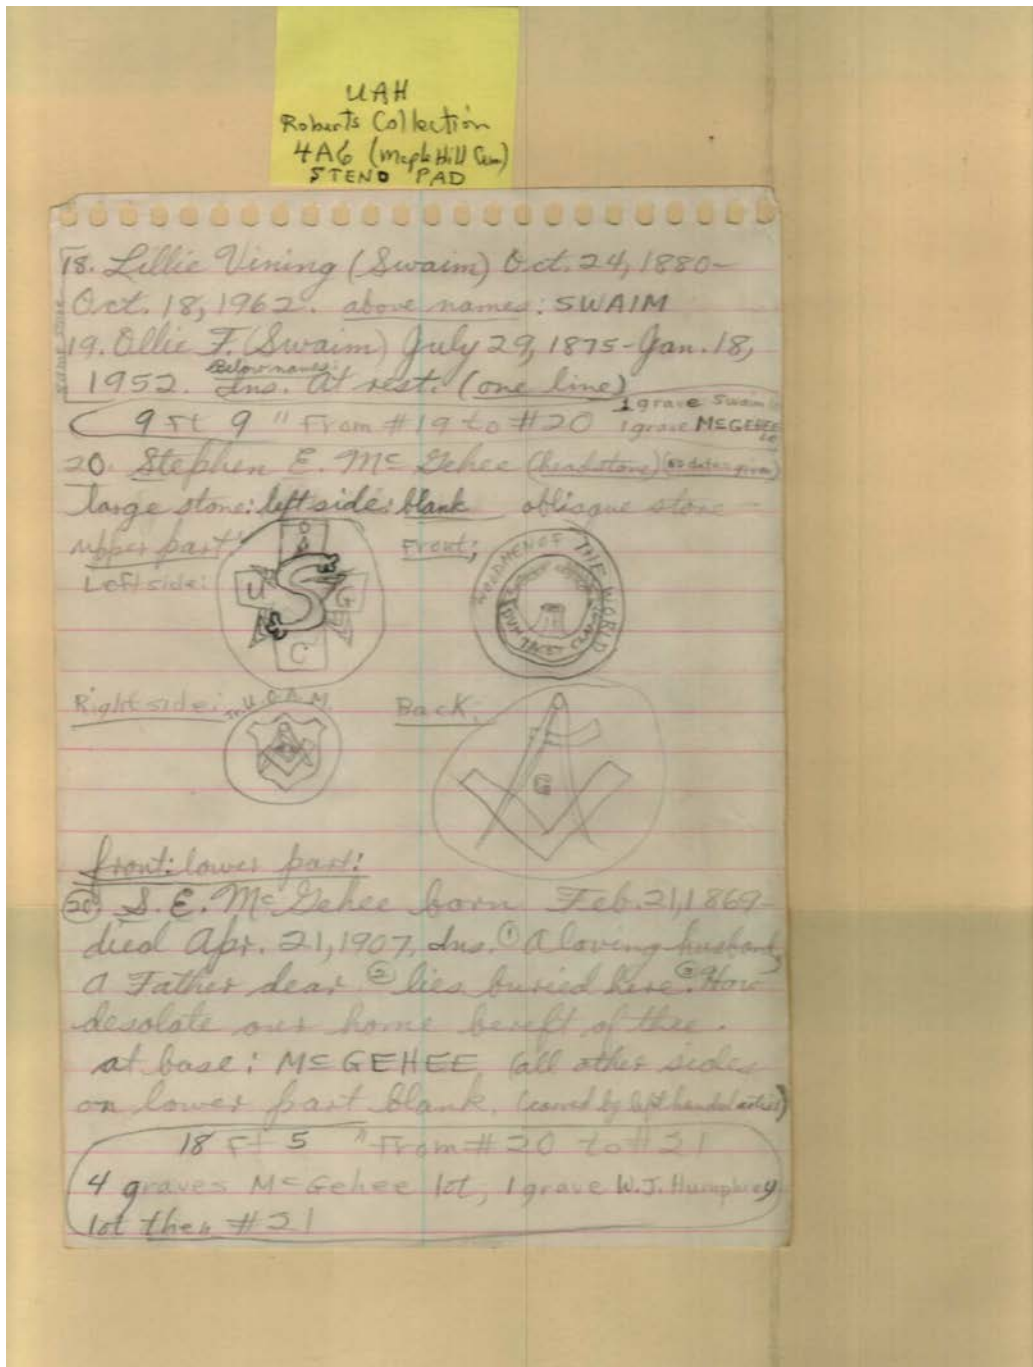 UAH
Roberts Collection
4A6 (Maple Hill Cem)
STENO PAD
same stone
18. Lillie Vining (Swaim) Oct. 24, 1880-
Oct. 18, 1962. above names: SWAIM
19. Ollie F. (Swaim) July 29, 1875-Jan. 18,
Below names:
1952. Ins. At rest. (one line)
1 grave Swaim
9 FT 9 " From #19 to #20 1 grave McGEHEE
20. Stephen E. Mc Gehee (headstone) (no dates given)
large stone: left side: blank oblisque stone
upper part: Front:
Left side:
U G C
WOODMEN OF THE WORLD
Right side: Jr. U O A M Back:
G
front: lower part:
20 S. E. Mc Gehee born Feb. 21, 1869-
died Apr. 21, 1907, Ins. ① A loving husband,
a Father dear ② lies buried here. ③ How
desolate our home bereft of thee.
at base: McGEHEE (all other sides
on lower part blank. (carved by left handed artist)
18 FT 5 " From #20 to #21
4 graves McGehee lot, 1 grave W.J. Humphrey
lot then #21